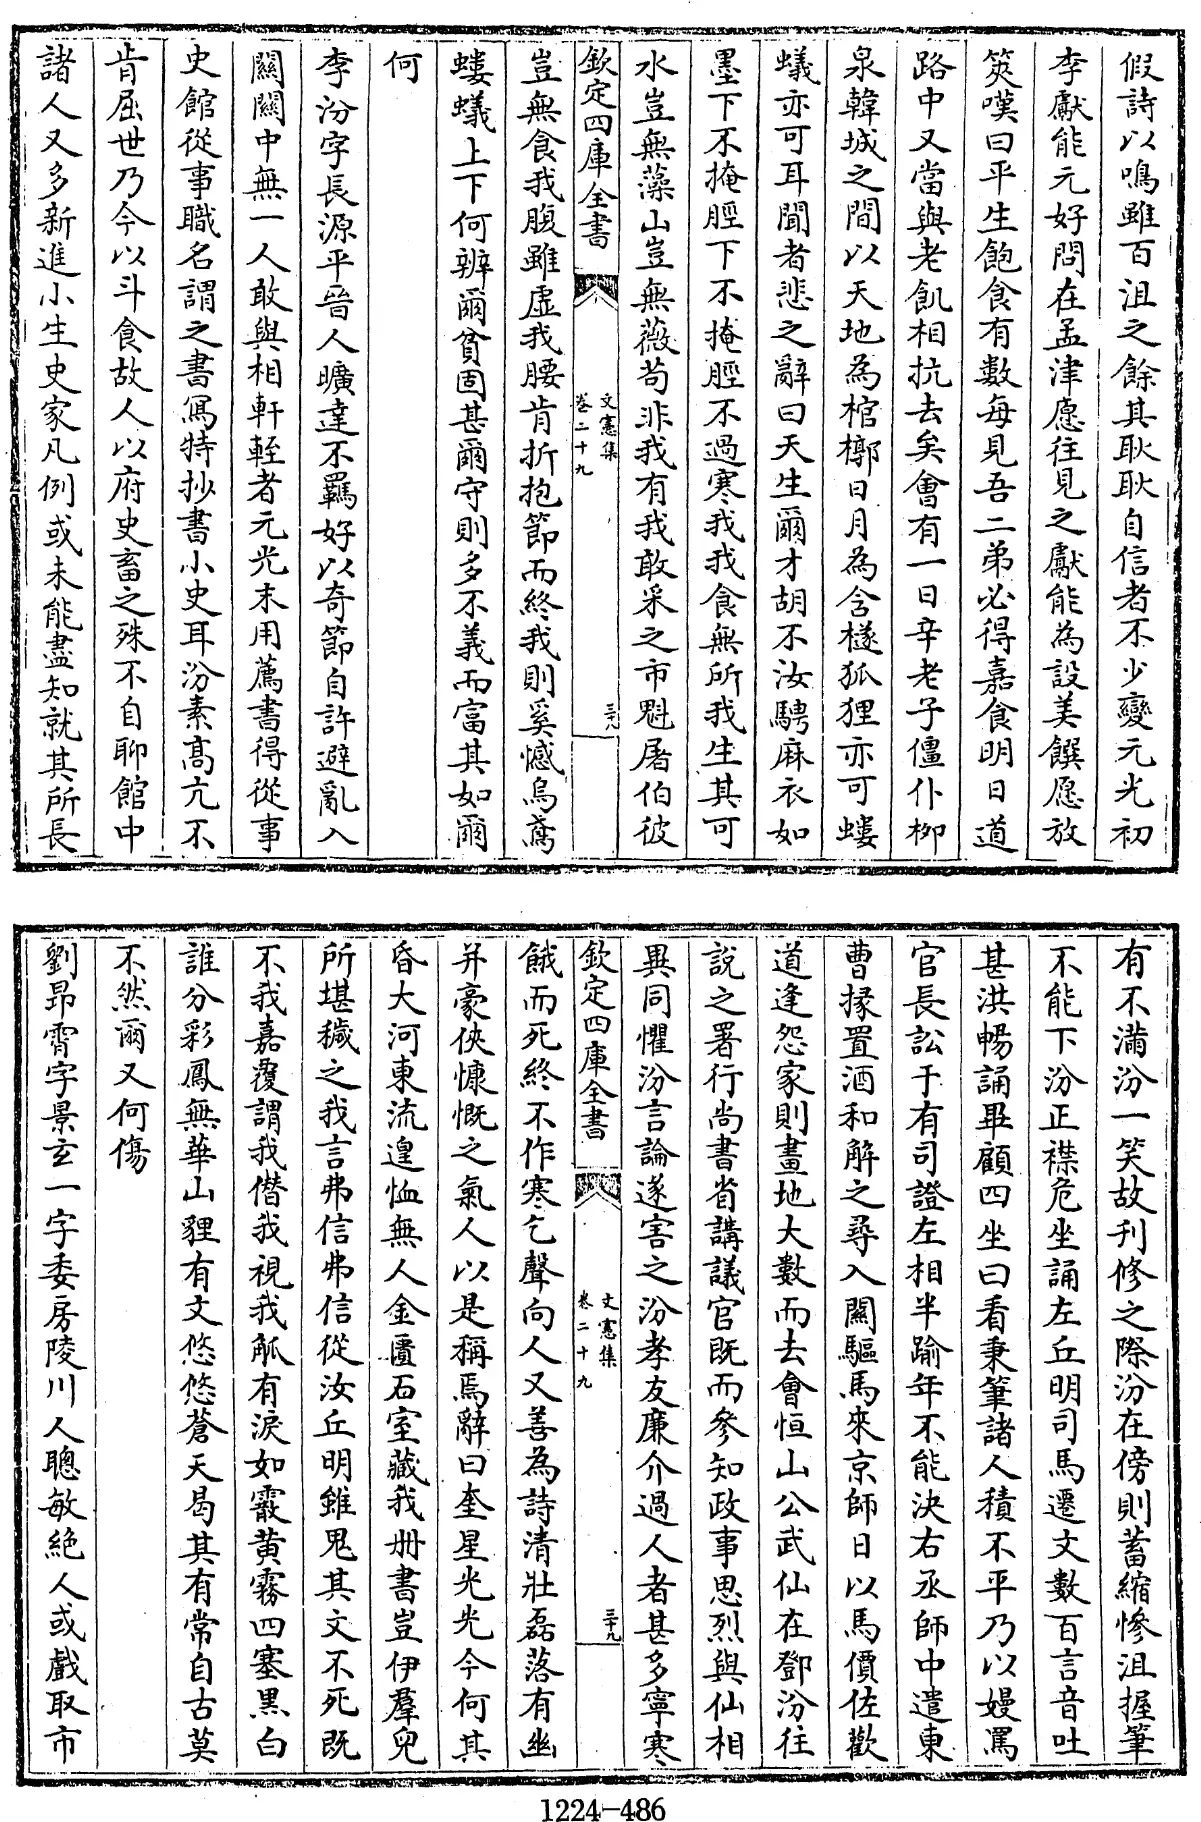 假詩以鳴雖百沮之餘其耿耿自信者不少變元光初
李獻能元好問在孟津愿往見之獻能為設美饌愿放
筴嘆曰平生飽食有數每見吾二弟必得嘉食明日道
路中又當與老飢相抗去矣會有一日辛老子僵仆柳
泉韓城之間以天地為棺槨日月為含襚狐狸亦可螻
蟻亦可耳聞者悲之辭曰天生爾才胡不汝騁麻衣如
墨下不掩脛下不掩脛不過寒我我食無所我生其可
水豈無藻山豈無薇苟非我有我敢采之市魁屠伯彼
欽定四庫全書
文憲集
卷二十九
豈無食我腹雖虛我腰肯折抱節而終我則奚憾烏鳶
螻蟻上下何辨爾貧固甚爾守則多不義而富其如爾
何
李汾字長源平晉人曠達不羈好以奇節自許避亂入
關關中無一人敢與相軒輊者元光末用薦書得從事
史館從事職名謂之書寫特抄書小史耳汾素髙亢不
肯屈世乃今以斗食故人以府史畜之殊不自聊館中
諸人又多新進小生史家凡例或未能盡知就其所長
有不滿汾一笑故刊修之際汾在傍則蓄縮慘沮握筆
不能下汾正襟危坐誦左丘明司馬遷文數百言音吐
甚洪暢誦畢顧四坐曰看秉筆諸人積不平乃以嫚罵
官長訟于有司證左相半踰年不能決右丞師中遣東
曹掾置酒和解之尋入關驅馬來京師日以馬價佐歡
道逢怨家則畫地大數而去會恒山公武仙在鄧汾往
說之署行尚書省講議官既而參知政事思烈與仙相
異同懼汾言論遂害之汾孝友廉介過人者甚多寧寒
欽定四庫全書
文憲集
卷二十九
三十九
餓而死終不作寒乞聲向人又善為詩清壯磊落有幽
并豪俠慷慨之氣人以是稱焉辭曰奎星光光今何其
昏大河東流遑恤無人金匱石室藏我冊書豈伊羣兒
所堪穢之我言弗信弗信從汝丘明雖鬼其文不死既
不我嘉覆謂我僭我視我觚有淚如霰黄霧四塞黒白
誰分彩鳳無華山貍有文悠悠蒼天曷其有常自古莫
不然爾又何傷
劉昻霄字景玄一字委房陵川人聰敏絶人或戲取市
1224-486